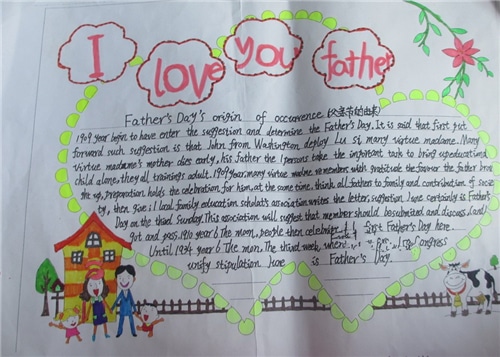 I love you father
Father's Day's origin of occurrence (父亲节的由来)
1909 year begin to have enter the suggestion and determine the Father's Day. It is said that first put
forward such suggestion is that John from Washington, deploy Lu si many virtue madame. Many
virtue madame's mother dies early, his father the 1 persons take the important task to bring up educational
child alone, they all trainings adult. 1909 year, many virtue madame remember with gratitude the favour the father bring
the up, preparation holds the celebration for him, at the same time, think all father to family and contribution of socie
ty, then give il local family education scholat's association writes the letter, suggestion June certainly is Father's
Day on the third Sunday. This association will suggest that member should be submited and discuss, and
got and pass. 1910 year 6 The mon, people then celebrate first Father's Day here.
Until 1934 year 6 The mon. The third week, when Congress
unify stipulation June is Father's Day.